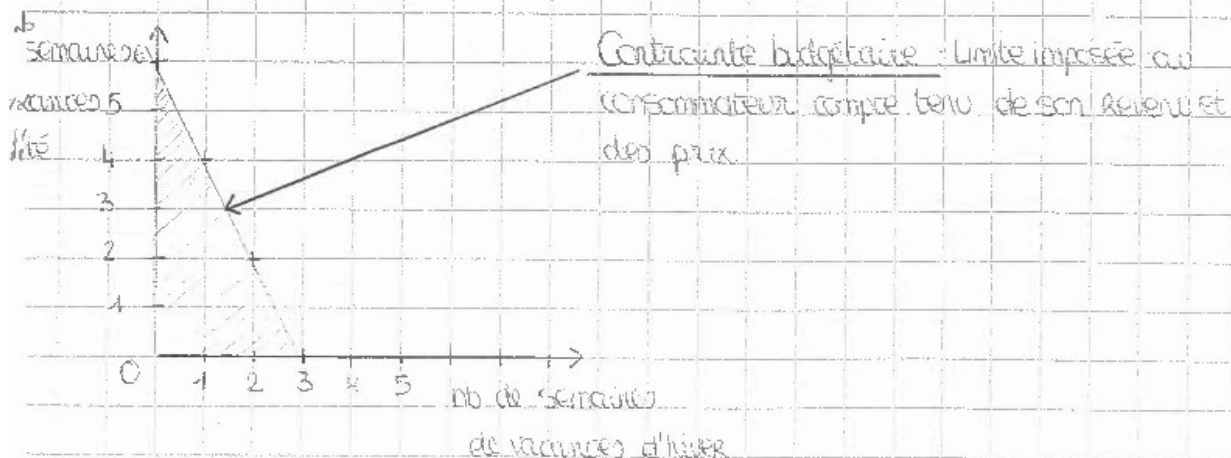 nb
semaines de
vacances
d'été
5
4
3
2
1
0
1 2 3 4 5
nb de semaines
de vacances d'hiver
Contrainte budgétaire : Limite imposée au
consommateur compte tenu de son revenu et
des prix